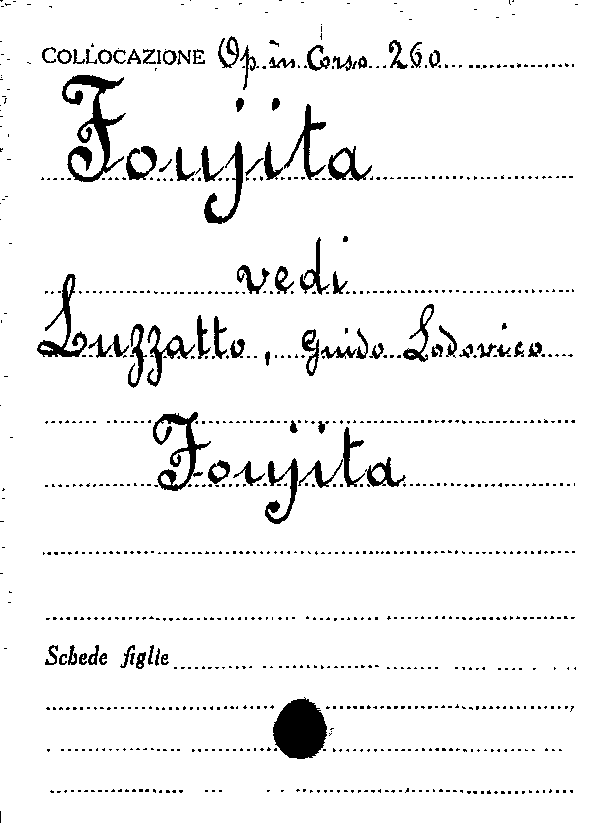 COLLOCAZIONE Op. in Corso 260
Foujita
vedi
Luzzatto, Guido Lodovico
Foujita
Schede figlie